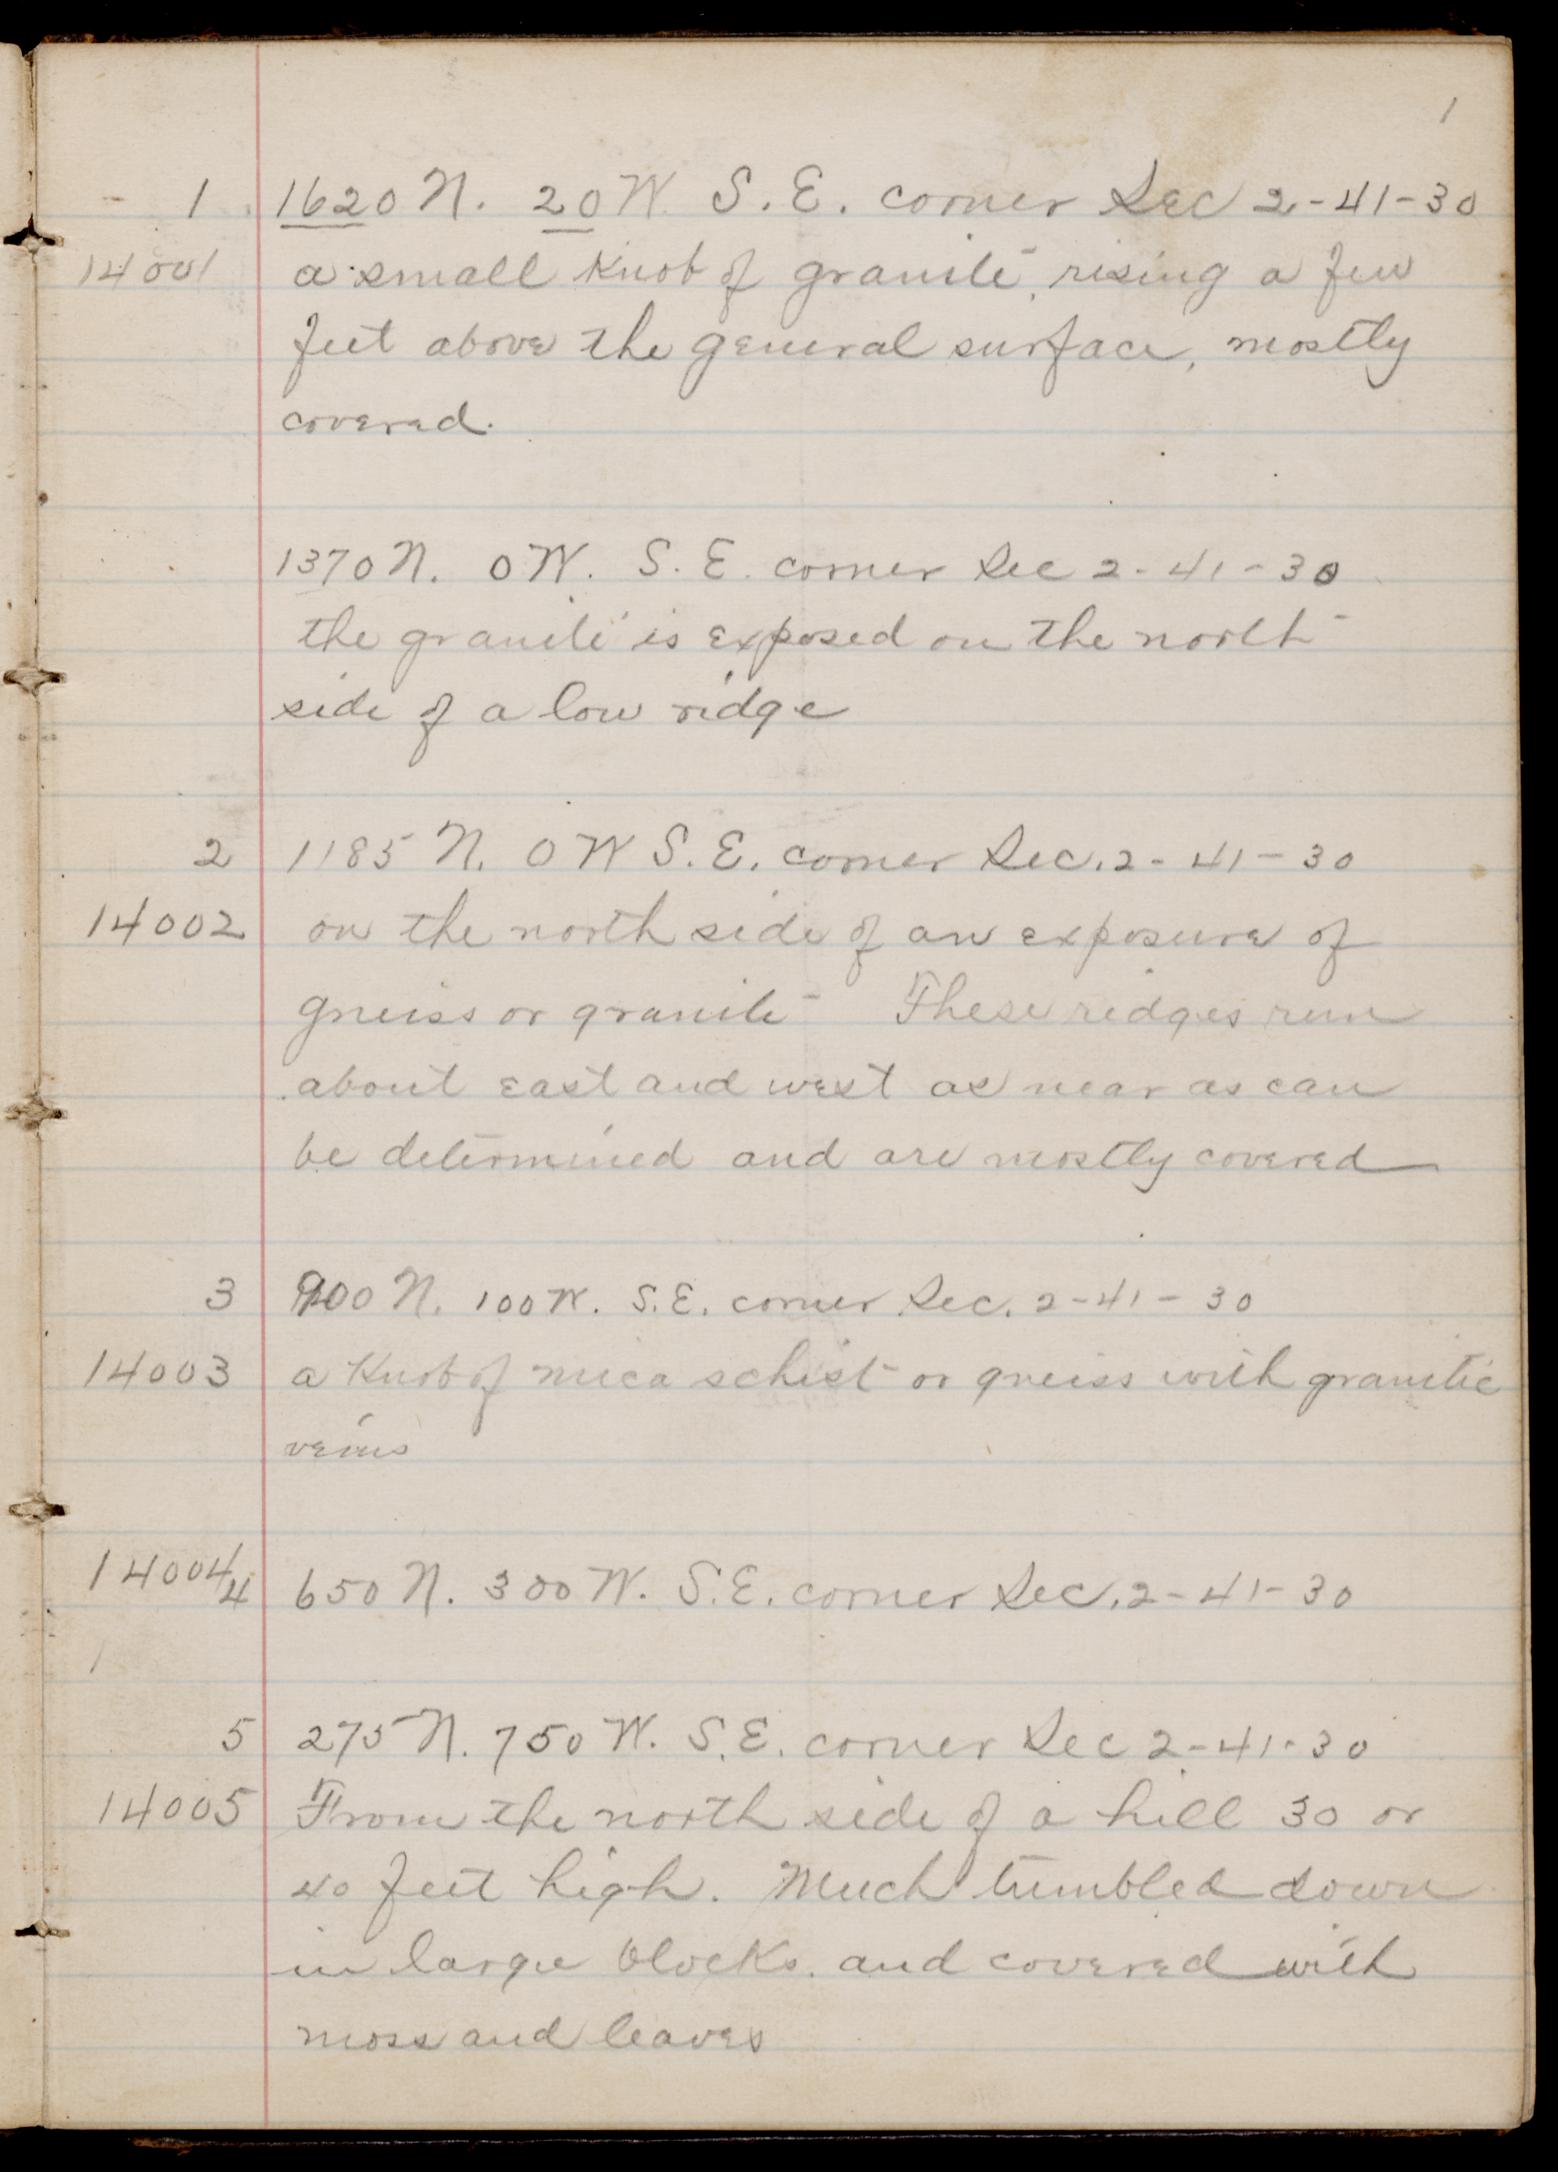 1
1 1620 N. 20 W S. E. corner Sec 2-41-30
14001 a small Knob of granite, rising a few
feet above the general surface, mostly
covered.
1370 N. 0 W. S. E. corner Sec 2-41-30
the granite is exposed on the north
side of a low ridge
2 1185 N. 0 W S. E. corner Sec. 2-41-30
14002 on the north side of an exposure of
gneiss or granite These ridges run
about east and west as near as can
be determined and are mostly covered
3 900 N. 100 W. S.E. corner Sec. 2-41-30
14003 a Knob of mica schist or gneiss with granitic
veins
14004 4 650 N. 300 W. S.E. corner Sec. 2-41-30
5 275 N. 750 W. S.E. corner Sec 2-41-30
14005 From the north side of a hill 30 or
40 feet high. Much tumbled down
in large blocks. and covered with
moss and leaves